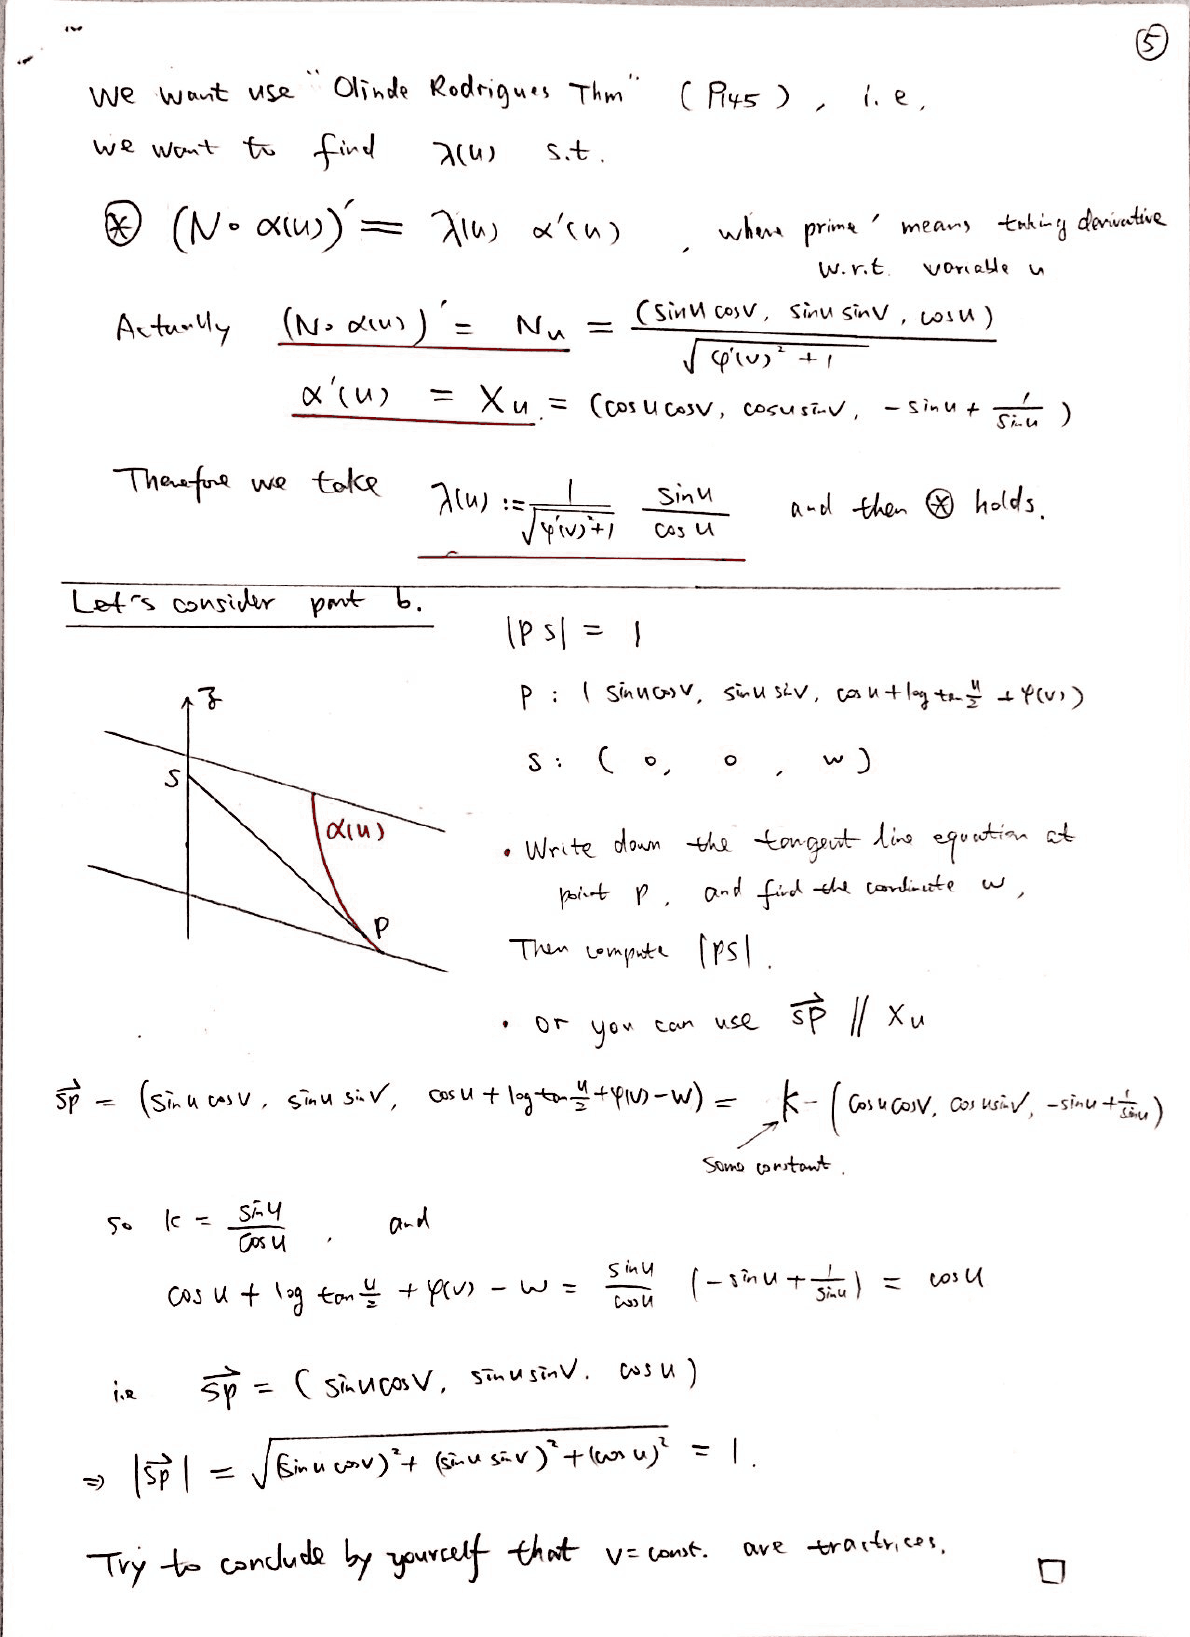 ⑤
We want use "Olinde Rodrigues Thm" (P145), i.e,
we want to find λ(u) s.t.
⊛ (N∘α(u))′ = λ(u) α′(u) , where prime ′ means taking derivative
w.r.t. variable u
Actually (N∘α(u))′ = N_u = (sinu cosv, sinu sinv, cosu) / √(φ′(v)² + 1)
α′(u) = X_u = (cosu cosv, cosu sinv, -sinu + 1/sinu)
Therefore we take λ(u) := 1/√(φ′(v)²+1) sinu/cosu and then ⊛ holds.
Let's consider part b.
|PS| = 1
z
P : ( sinu cosv, sinu sinv, cosu + log tan u/2 + φ(v))
S : ( 0, 0, w)
S
α(u)
P
• Write down the tangent line equation at
point P, and find the cordinate w,
Then compute |PS|.
• or you can use SP⃗ // X_u
SP⃗ = (sinu cosv, sinu sinv, cosu + log tan u/2 + φ(v) - w) = k · (cosu cosv, cosu sinv, -sinu + 1/sinu)
some constant.
so k = sinu/cosu , and
cosu + log tan u/2 + φ(v) - w = sinu/cosu (-sinu + 1/sinu) = cosu
i.e SP⃗ = ( sinu cosv, sinu sinv, cosu )
⇒ |SP⃗| = √((sinu cosv)² + (sinu sinv)² + (cosu)²) = 1.
Try to conclude by yourself that v = const. are tractrices. □